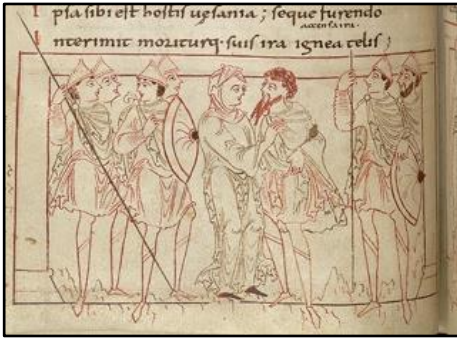 I psa sibi est hostis uesania ; seque furendo
accensa ira·
I nterimit moriturq· suis ira ignea telis ;